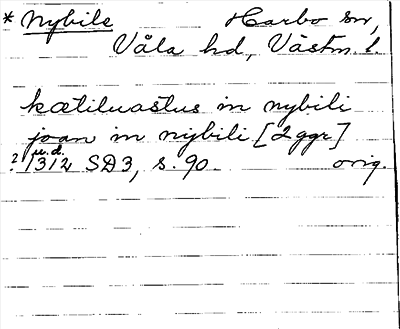 * Nybile Harbo sn,
Våla hd, Västm. l.
kætiluastus in nybili
joan in nybili [2 ggr]
u.d.
? 1312 SD3, s. 90. orig.